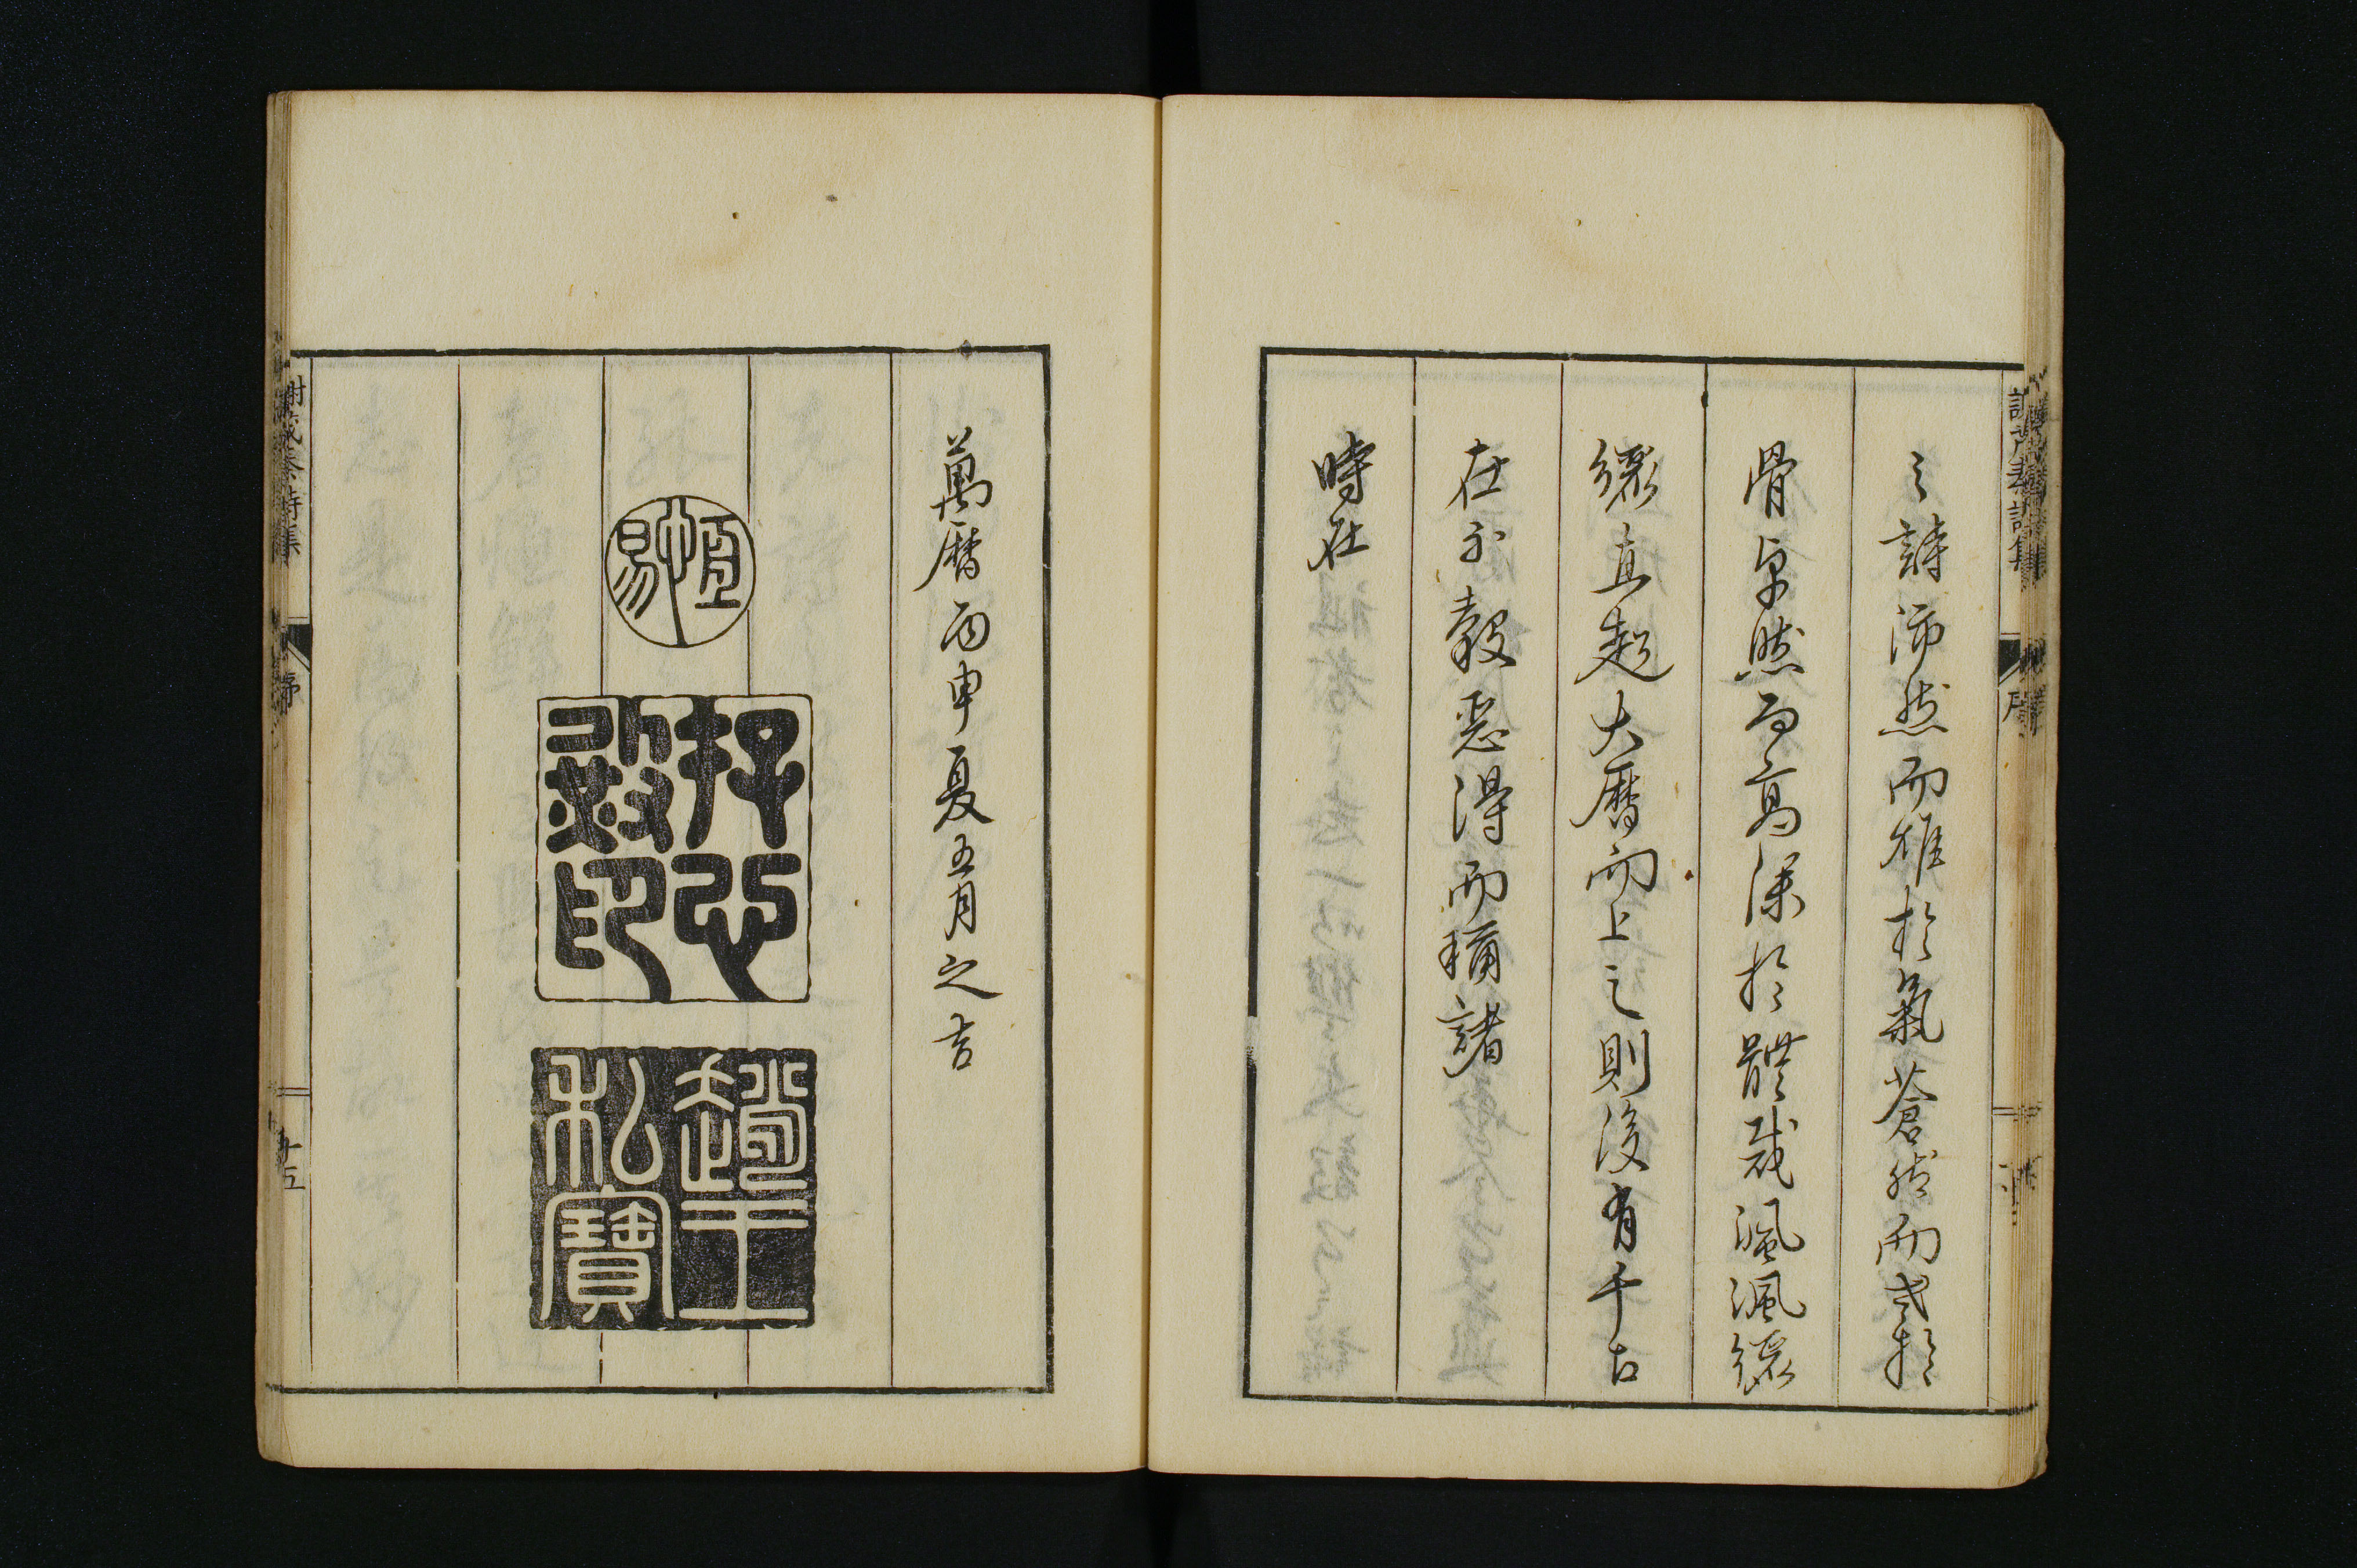 之詩沛然而雄於氣蒼然而老於
骨卓然而高深於體裁渢渢纚
纚直超大曆而上之則後有千古
在不穀惡得而穪諸
時在
萬曆丙申夏五月之吉
恒易
存心殿印
趙王私寶
謝茂秦詩集
序
十五